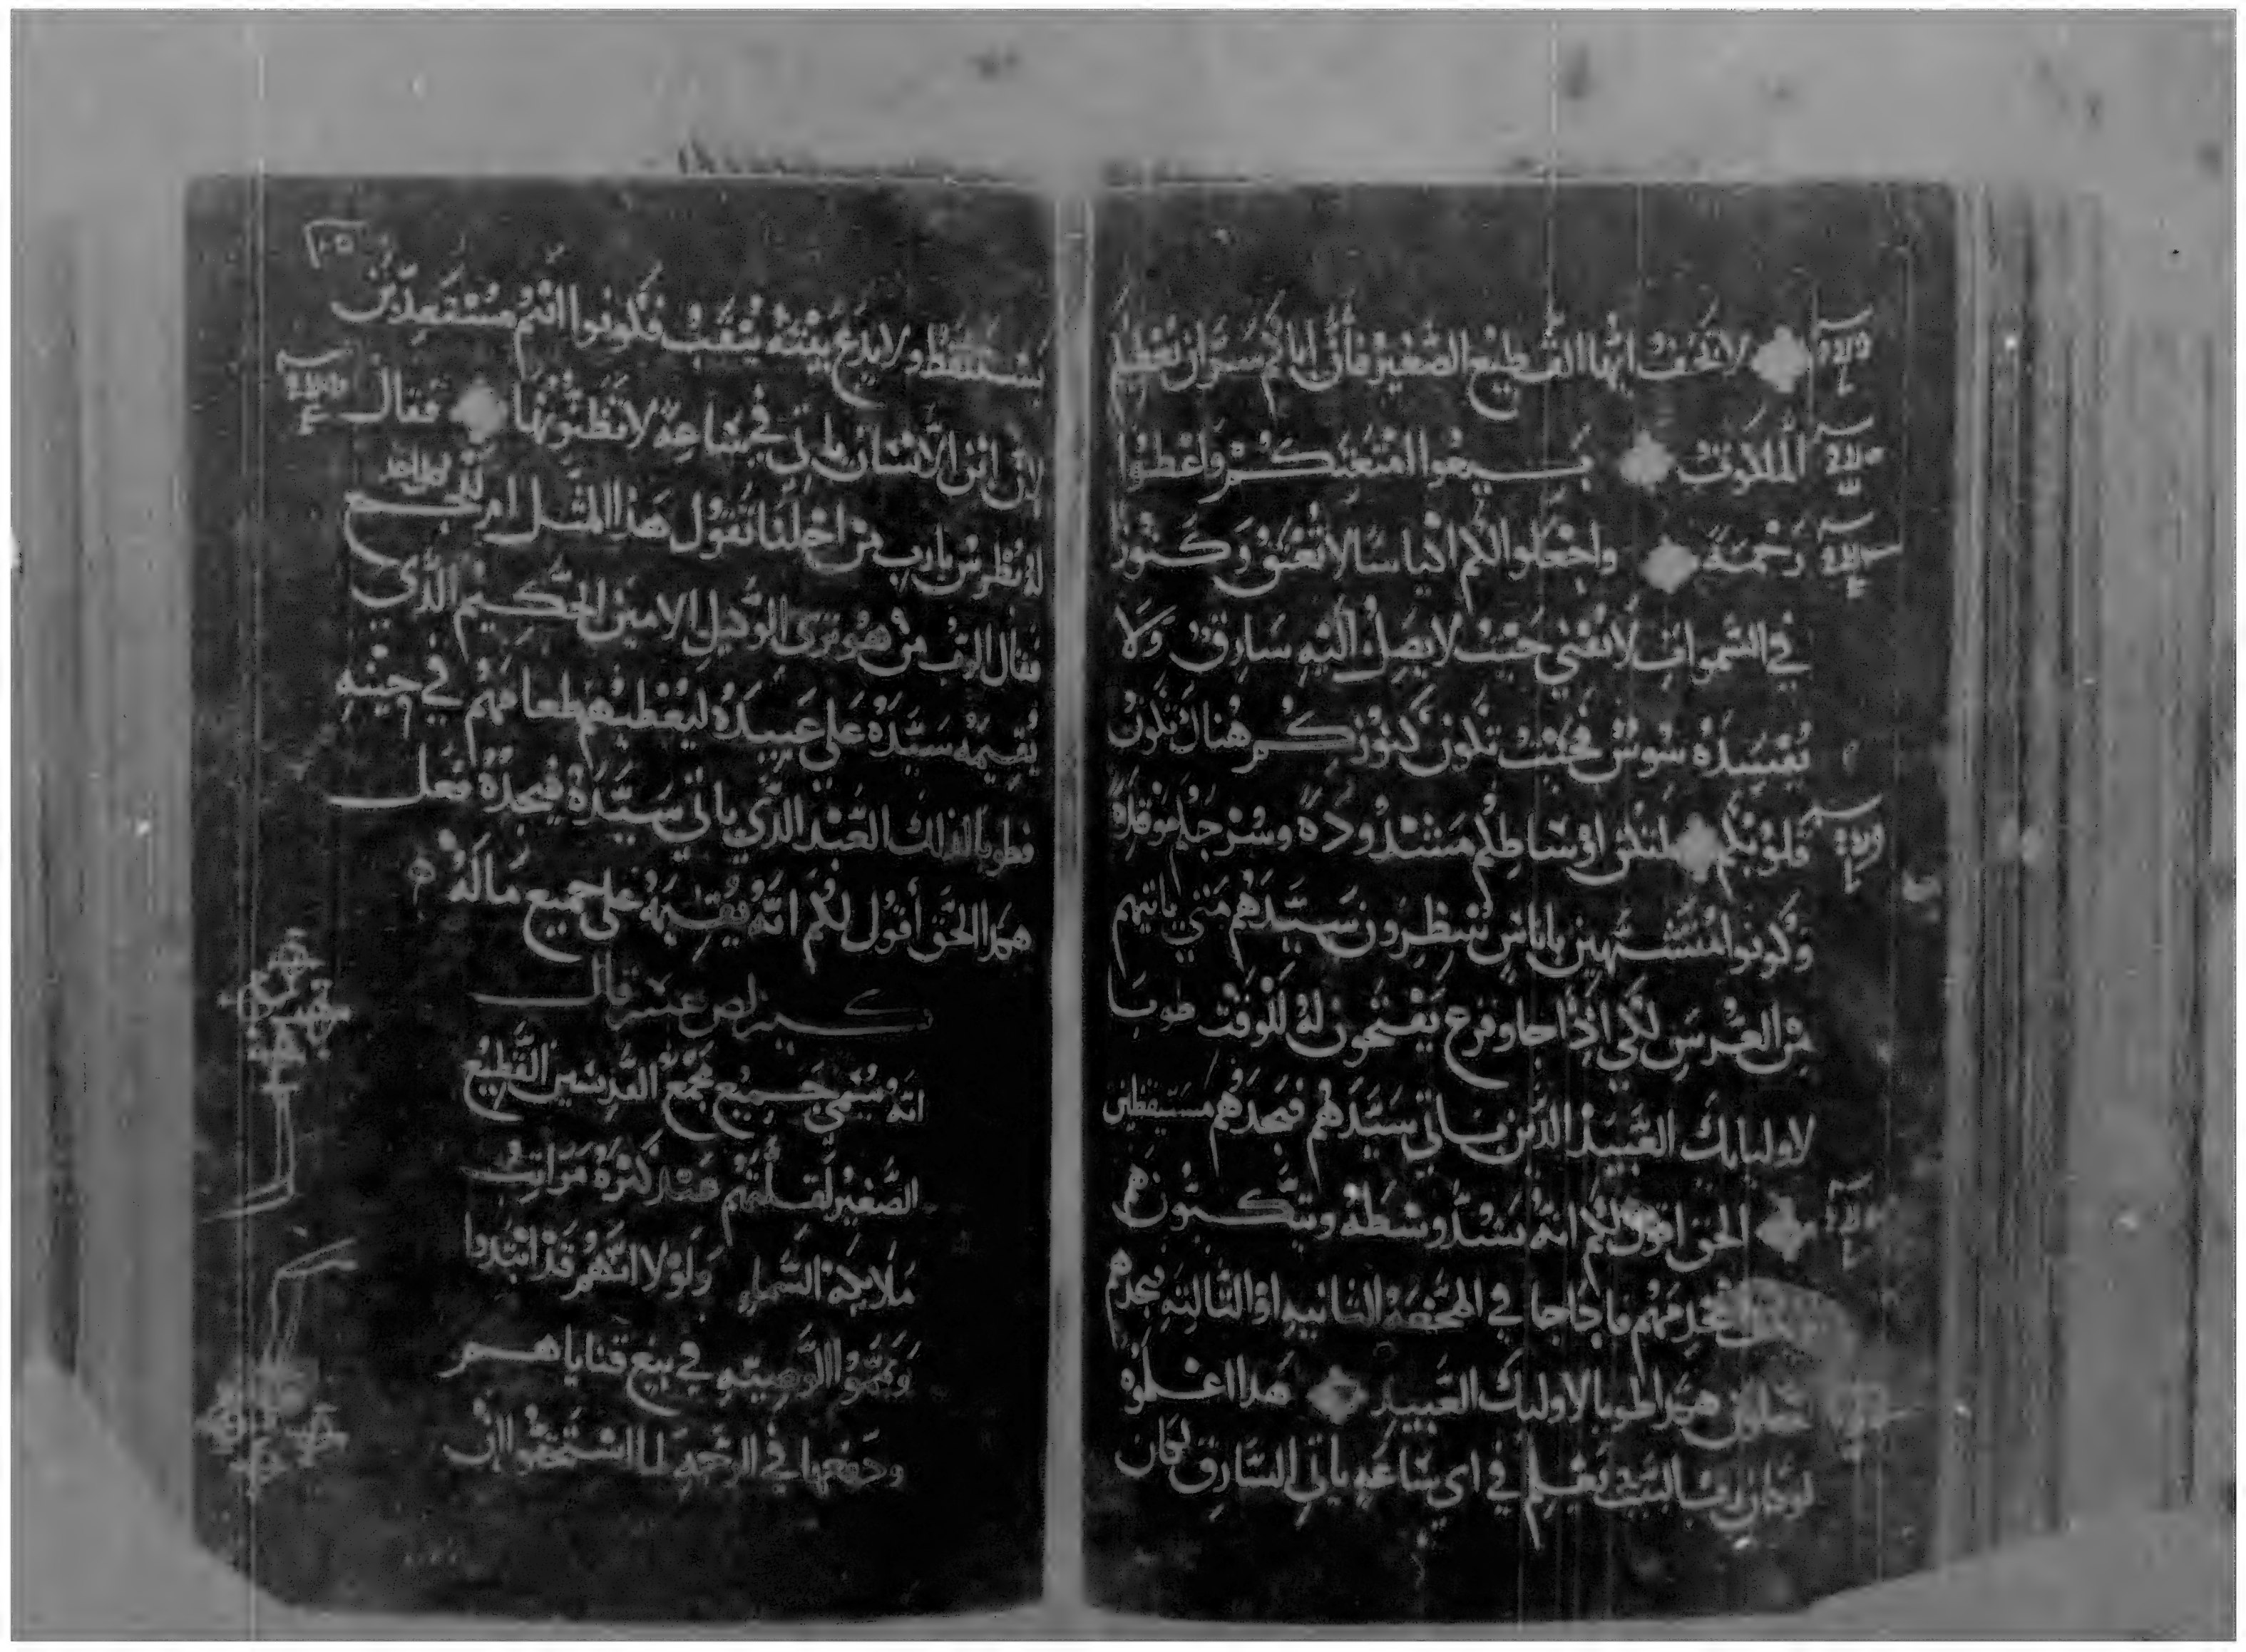 لا تخف ايها القطيع الصغير فان اباكم سر ان يعطيكم
الملكوت بيعوا امتعتكم واعطوا
رحمة واجعلوا لكم اكياسا لا تعتق وكنوز
في السموات لا تفني حيث لا يصل اليه سارق ولا
يفسده سوس فحيث تكون كنوزكم هناك تكون
قلوبكم لتكن اوساطكم مشدوده وسرجكم موقده
وكونوا متشبهين باناس ينتظرون سيدهم متي ياتيهم
من العرس لكي اذا جا وقرع يفتحون له للوقت طوبا
لاوليايك العبيد الذين ياتي سيدهم فيجدهم مستيقظين
الحق اقول لكم انه يشد وسطه ويتكيون هم
يخدمهم فاذا جا في الهجعه الثانيه او الثالثه فيجدهم
هكذا طوبا لاوليك العبيد هذا اعلموه
لو كان رب البيت يعلم في اي ساعه ياتي السارق لكان
١٠٥
يستيقظ ولا يدع بيته ينقب فكونوا انتم مستعدين
لان ابن الانسان ياتي في ساعه لا تظنونها فقال
له بطرس يارب من اجلنا تقول هذا المثل ام للجميع
فقال الرب من هو تري الوكيل الامين الحكيم الذي
يقيمه سيده علي عبيده ليعطيهم طعامهم في حينه
فطوبا لذلك العبد الذي ياتي سيده فيجده فعل
هكذا الحق أقول لكم انه يقيمه علي جميع ماله
قال
انه سمي جميع مجمع القديسين القطيع
الصغير لقلتهم عند كثرة مراتب
ملايكة السماء ولولا انهم قد ابتدوا
وتمموا الوصيه في بيع قناياهم
ودفعها في الرحمه لما استحقوا ان